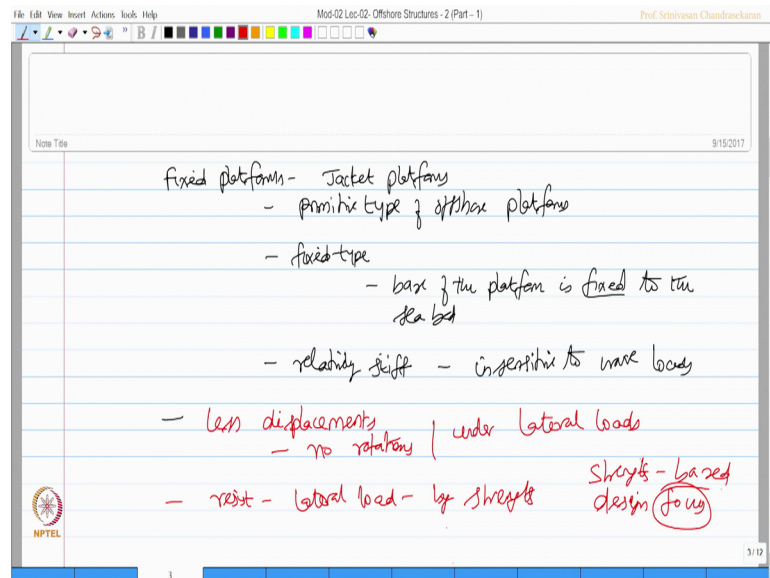 File Edit View Insert Actions Tools Help
Mod-02 Lec-02- Offshore Structures - 2 (Part – 1)
Prof. Srinivasan Chandrasekaran
B I
Note Title
9/15/2017
fixed platforms - Jacket platforms
- primitive type of offshore platforms
- fixed-type
- base of the platform is fixed to the
sea bed
- relatively stiff - insensitive to wave loads
- less displacements
- no rotations | under lateral loads
- resist - lateral load - by strength
strength - based
design focus
NPTEL
3 / 12
3